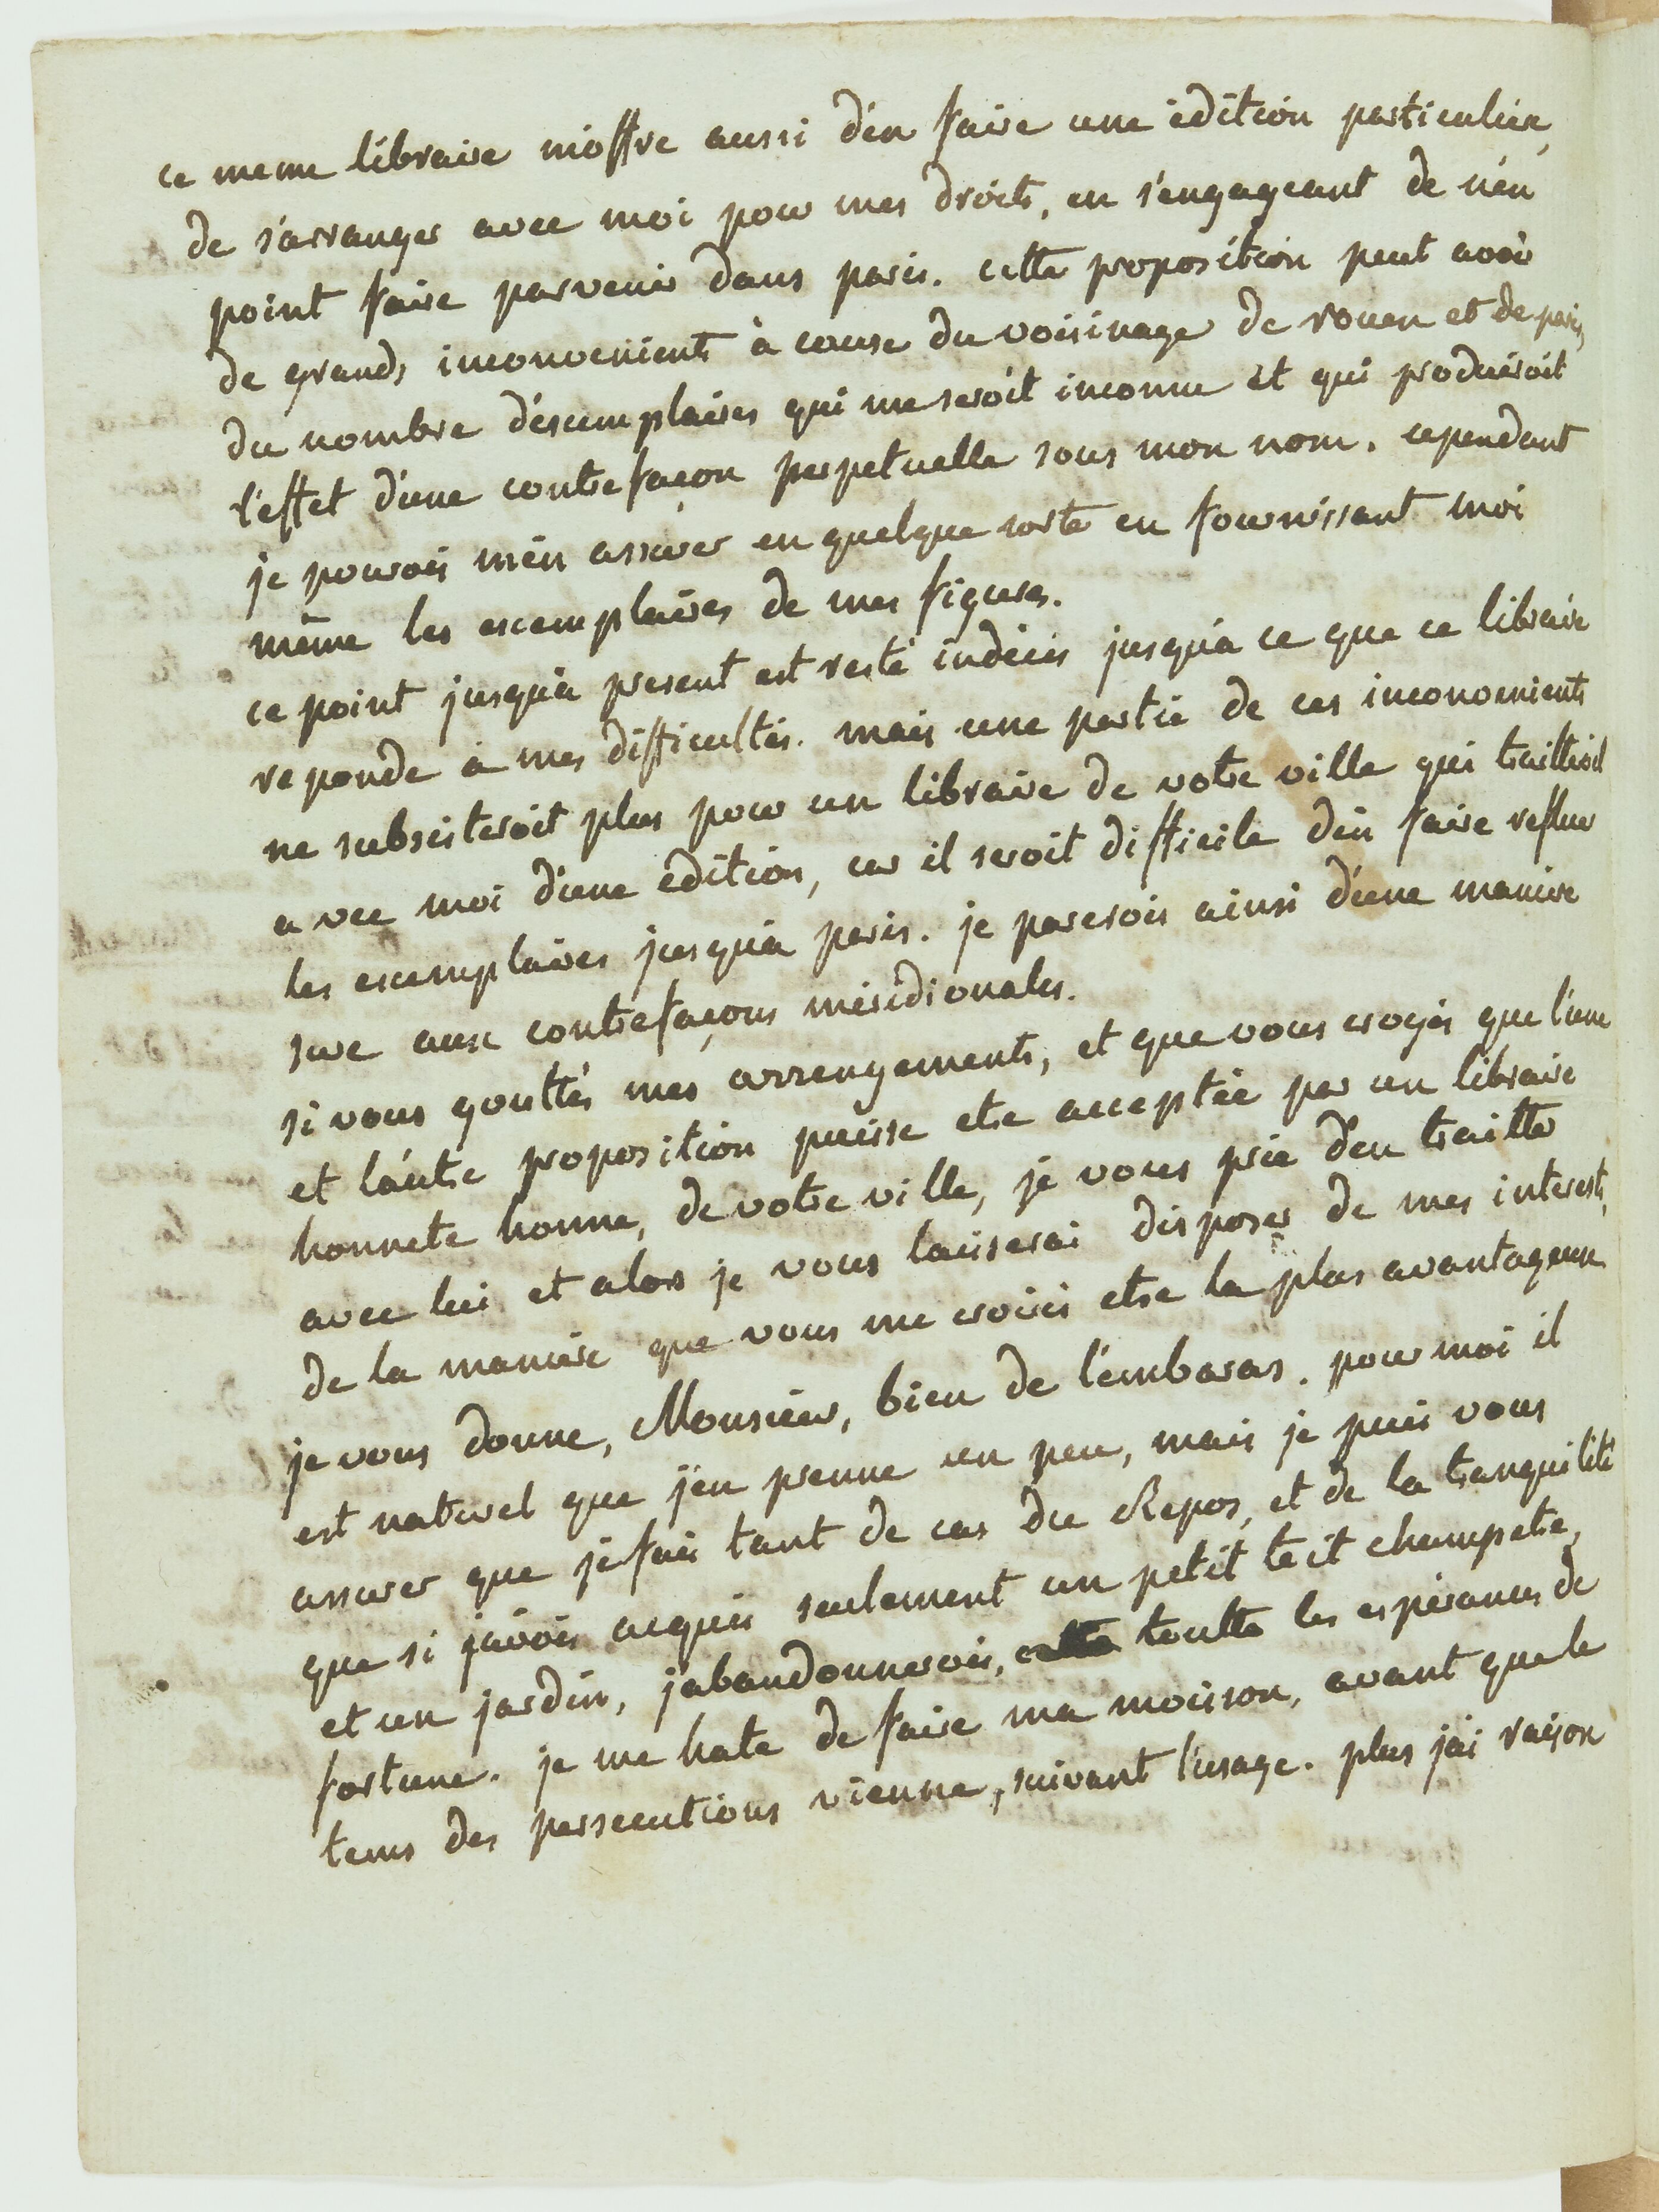 ce meme libraire m'offre aussi d'en faire une édition particulière,
de s'arranger avec moi pour mes droits, en s'engageant de n'en
point faire parvenir dans paris. cette proposition peut avoir
de grands inconvenients à cause du voisinage de rouen et de paris,
du nombre d'exemplaires qui me seroit inconnu et qui produiroit
l'effet d'une contrefaçon perpetuelle sous mon nom. cependant
je pourois m'en assurer en quelque sorte en fournissant moi
même les exemplaires de mes figures.
ce point jusqu'à present est resté indécis jusqu'à ce que ce libraire
reponde à mes difficultés. mais une partie de ces inconvenients
ne subsisteroit plus pour un libraire de votre ville qui traitteroit
avec moi d'une édition, car il seroit difficile d'en faire refluer
les exemplaires jusqu'à paris. je parerois ainsi d'une maniere
sure aux contrefaçons méridionales.
si vous gouttés mes arrengements, et que vous croyés que l'une
et l'autre proposition puisse etre acceptée par un libraire
honnete homme, de votre ville, je vous prie d'en traitter
avec lui et alors je vous laisserai disposer de mes interests,
de la maniere que vous me croirés etre la plus avantageuse
je vous donne, Monsieur, bien de l'embaras. pour moi il
est naturel que j'en prenne un peu, mais je puis vous
assurer que je fais tant de cas du Repos, et de la tranquilité
que si j'avois acquis seulement un petit toit champetre,
et un jardin, j'abandonnerois, toutte les espérances de
fortune. je me hate de faire ma moisson, avant que le
tems des persecutions vienne, suivant l'usage. plus j'ai raison